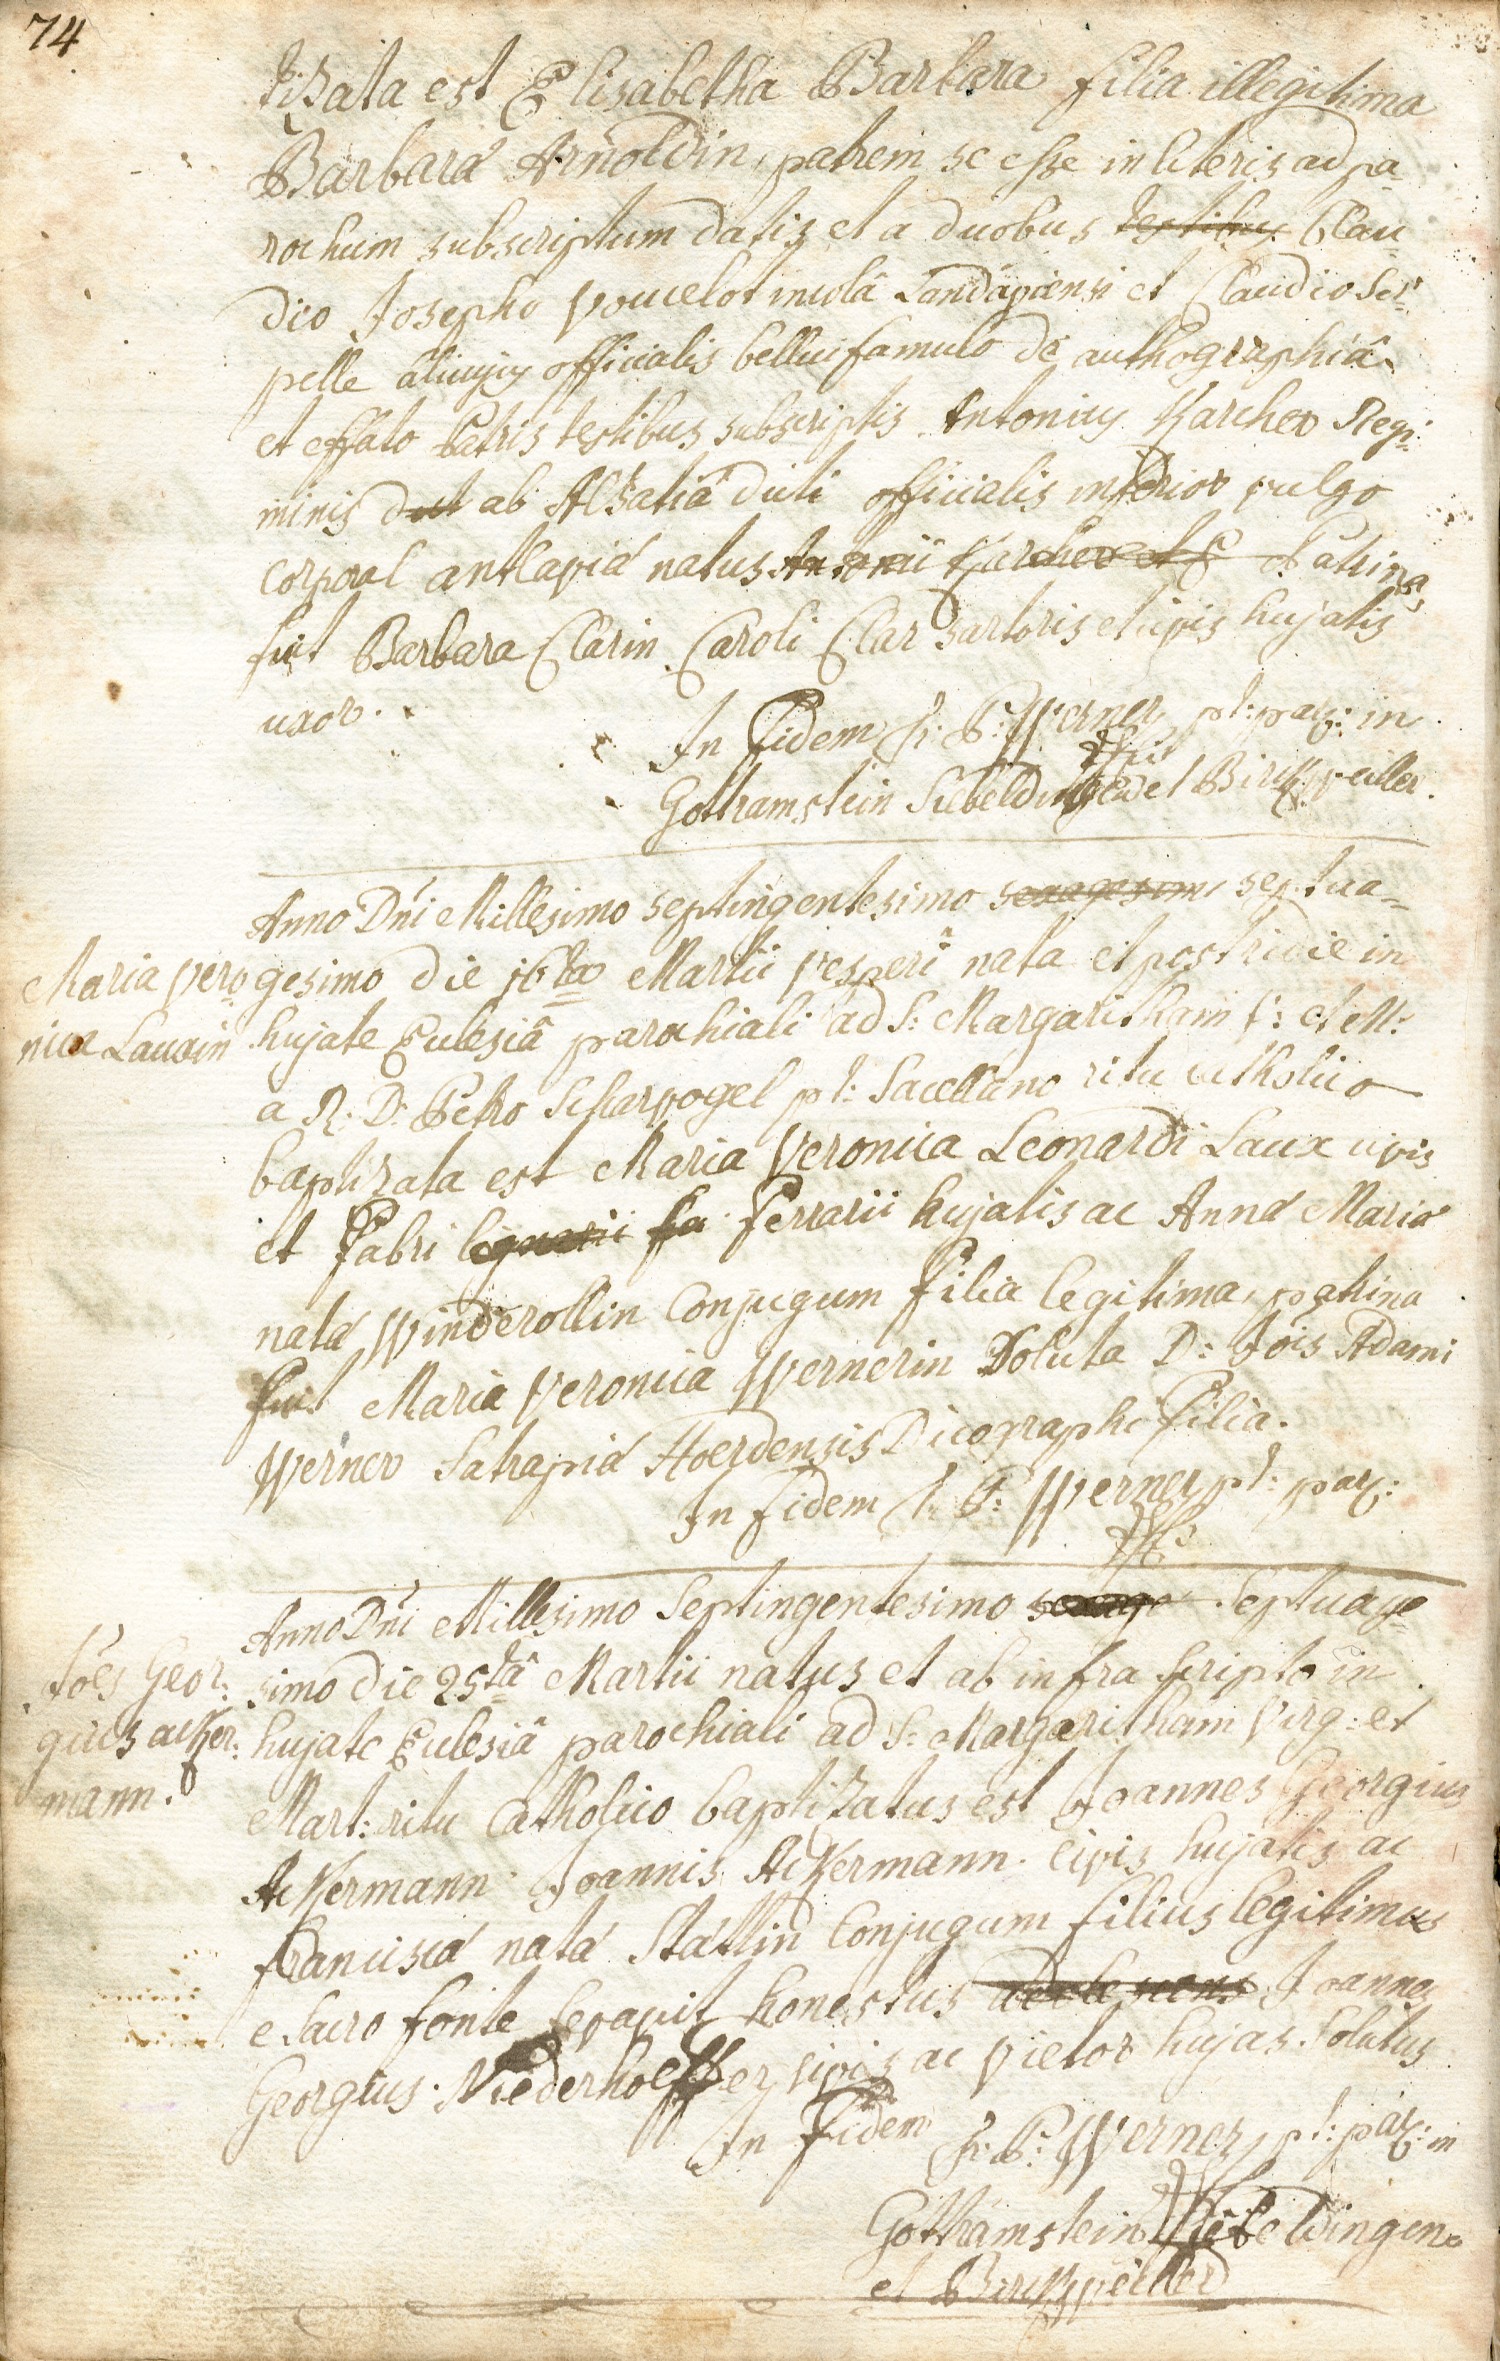 74
tizata est Elisabetha Barbara filia illegitima
Barbarâ Arnoldin, patrem se esse in literis ad pa-
rochum subscriptum datis et a duobus testibus Clau-
dio Josepho Voucelot incolâ Landaviensi et Claudio
pelle alicujus officialis bellici famulo de authographiâ
et effato Patris testibus subscriptis Antonius Karcher Regi-
minis dict ab Alsatiâ dicti officialis inferior vulgo
corporal natus Antonii Karcher et Patrina
fuit Barbara Clarin Caroli Clar sartoris civis hujatis
uxor.
In Fidem Fr: P: Werner pt: par: in
Gottramstein Siebeldingen et Birckweiller.
Anno Dñi Millesimo septingentesimo sexagesimo septua-
Maria Vero-
nica Lauxin
gesimo die 16ta Martii vesperi nata et postridie in
hujate Ecclesiâ parochiali ad S: Margaritham V: et M:
a R: D: Petro Scharvogel pt: Sacellano ritu catholico
baptizata est Maria Veronica Leonardi Laux civis
et Fabri lignarii fa Ferrarii hujatis ac Annâ Mariâ
natâ Winderollin Conjugum Filia legitima, patrina
fuit Maria Veronica Wernerin Soluta D: Jois Adami
Werner Satrapiâ Filia.
In Fidem Fr: P: Werner pt: par:
Anno Dñi Millesimo Septingentesimo sexage Septuage-
Jões Geor:
gius acker:
mann.
simo die 25tâ Martii natus et ab infra scripto in
hujate Ecclesiâ parochiali ad S: Margaritham Virg: et
Mart: ritu Catholico baptizatus est Joannes Georgius
Ackermann Joannis Ackermann civis hujatis ac
Franciscâ natâ Stattlin Conjugum filius legitimus
e sacro fonte levavit honestus adolescens Joannes
Georgius Niederhoeffer civis ac vietor hujas. Solutus
In Fidem Fr: P: Werner pt: par: in
Gottramstein Siebeldingen
et Birckweiller